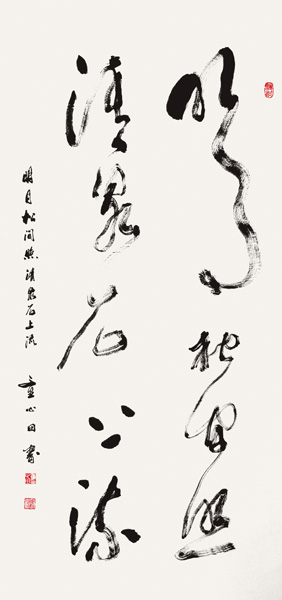 明月松间照
清泉石上流
明月松间照清泉石上流
童心田书